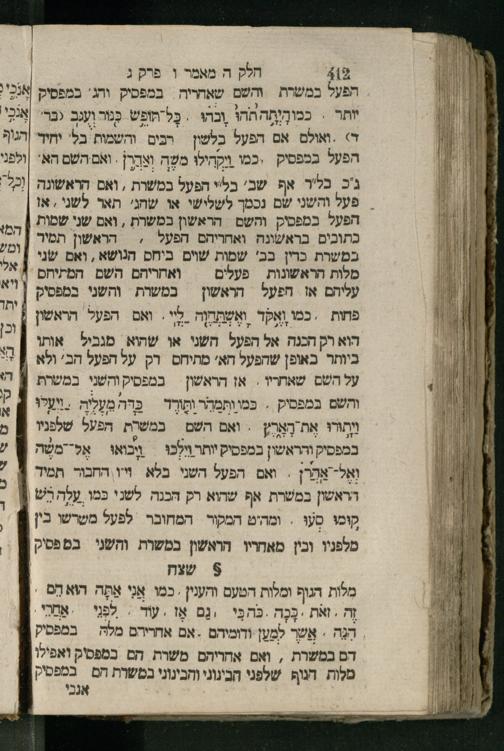 חלק ה מאמר ו פרק ג 412
הפעל במשרת והשם שאחריה במפסיק והג׳ במפסיק
יותר . כמו הָיְתָה תֹהוּ וָבֹהוּ . כָּל־תּוֹפֵשׂ כִּנּוֹר וְעֻגָב (בר׳
ד) . ואולם אם הפעל בלשון רבים והשמות בל׳ יחיד
הפעל במפסיק , כמו וַיַּקְהִילוּ מֹשֶׁה וְאַהֲרֹן . ואם השם הא׳
ג״כ בל״ר אף שב׳ בל״י הפעל במשרת , ואם הראשונה
פעל והשני שם נסמך לשלישי או שהג׳ תאר לשני , אז
הפעל במפסיק והשם הראשון במשרת , ואם שני שמות
כתובים בראשונה ואחריהם הפעל , הראשון תמיד
במשרת כדין בכ׳ שמות שוים ביחס הנושא , ואם שני
מלות הראשונות פעלים ואחריהם השם המתיחס
עליהם אז הפעל הראשון במשרת והשני במפסיק
פחות . כמו וָאֶקֹּד וָאֶשְׁתַּחֲוֶה לַיְיָ . ואם הפעל הראשון
הוא רק הכנה אל הפעל השני או שהוא מגביל אותו
ביותר באופן שהפעל הא׳ מתיחס רק על הפעל הב׳ ולא
על השם שאחריו . אז הראשון במפסיק והשני במשרת
והשם במפסיק . כמו וַתְּמַהֵר וַתֹּרֶד כַּדָּהּ מֵעָלֶיהָ . וַיַּעֲלוּ
וַיָּתֻרוּ אֶת־הָאָרֶץ . ואם השם במשרת הפעל שלפניו
במפסיק והראשון במפסיק יותר וַיֵּלְכוּ וַיָּבֹאוּ אֶל־מֹשֶׁה
וְאֶל־אַהֲרֹן . ואם הפעל השני בלא וי״ו החבור תמיד
הראשון במשרת אף שהוא רק הכנה לשני כמו עֲלֵה רֵשׁ
קוּמוּ סְעוּ . ומה״ט המקור המחובר לפעל משרשו בין
מלפניו ובין מאחריו הראשון במשרת והשני במפסיק
§ שצח
מלות הגוף ומלות הטעם והענין . כמו אֲנִי אַתָּה הוא הֵם .
זֶה . זֹאת . כָּכָה . כֹּה כִּי , גַם אָז . עוֹד . לִפְנֵי אַחֲרֵי .
הִנֵּה . אֲשֶׁר לְמַעַן ודומיהם . אם אחריהם מלה במפסיק
הם במשרת , ואם אחריהם משרת הם במפסיק ואפילו
מלות הגוף שלפני הבינוני והבינוני במשרת הם במפסיק
אנכי